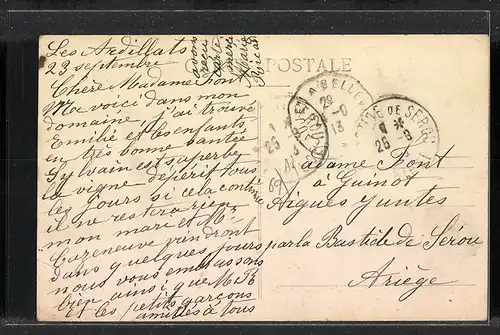 POSTALE
Les Ardillats
23 septembre
Chère Madame Font
Me voici dans mon
domaine, j'ai trouvé
Emilie et les enfants
en très bonne santé
Sylvain est superbe
la vigne dépérit tous
les jours si cela continue
il ne restera rien
mon mari et Mr
Cazeneuve viendront
dans quelques jours
nous vous embrassons
bien ainsi que M. R
et les petits garçons
amitiés à tous
avons
reçu
carte
merci
Madame Font
à Guinot
Aigues Juntes
par la Bastide de Sérou
Ariège